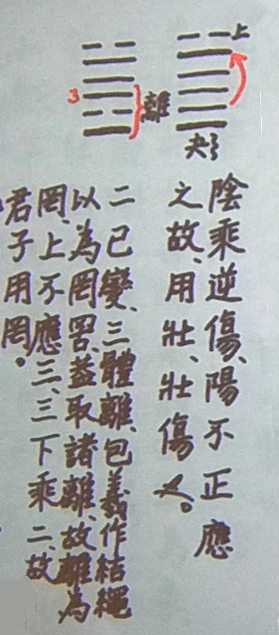 上
夬
3
離
陰乘逆傷、陽不正應
之故、用壯、壯傷也。
二已變、三體離、包羲作結繩
以為罔罟、蓋取諸離、故離為
罔、上不應三、三下乘二、故
君子用罔。